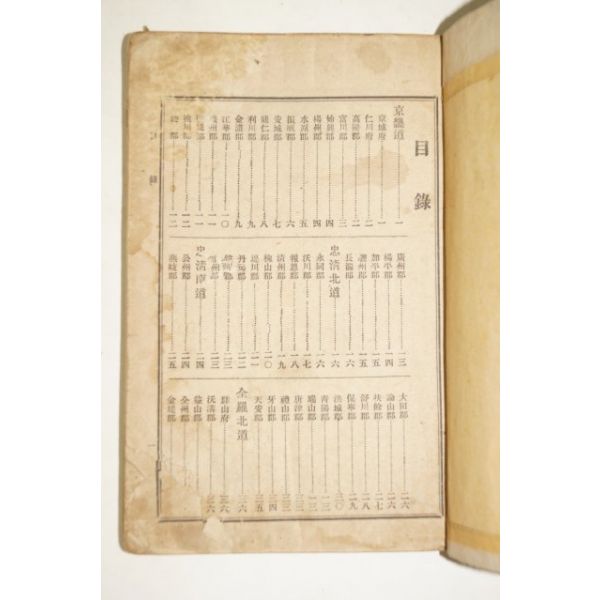 目錄
京畿道 一
京城府 一
仁川府 二
高陽郡 二
富川郡 三
始興郡 四
楊州郡 四
水原郡 五
振威郡 六
安城郡 七
龍仁郡 八
利川郡 九
金浦郡 九
江華郡 一〇
一一
一一
一二
一二
廣州郡 一三
楊平郡 一四
加平郡 一五
驪州郡 一五
長湍郡 一六
忠淸北道 一六
永同郡 一六
沃川郡 一七
報恩郡 一八
淸州郡 一九
槐山郡
丹陽郡
忠淸南道 二四
公州郡 二四
燕岐郡 二五
大田郡 二六
論山郡 二六
扶餘郡 二七
舒川郡 二八
保寧郡 二九
洪城郡 三〇
靑陽郡
瑞山郡
唐津郡
禮山郡
牙山郡 三四
天安郡 三五
全羅北道 三六
群山府 三六
沃溝郡 三六
益山郡
全州郡
金堤郡
目錄
一